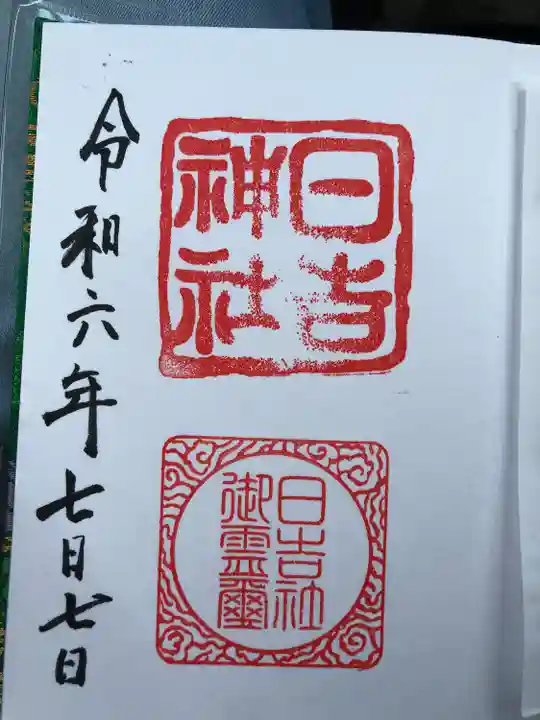 日吉
神社
日吉社
御霊璽
令和六年七日七日